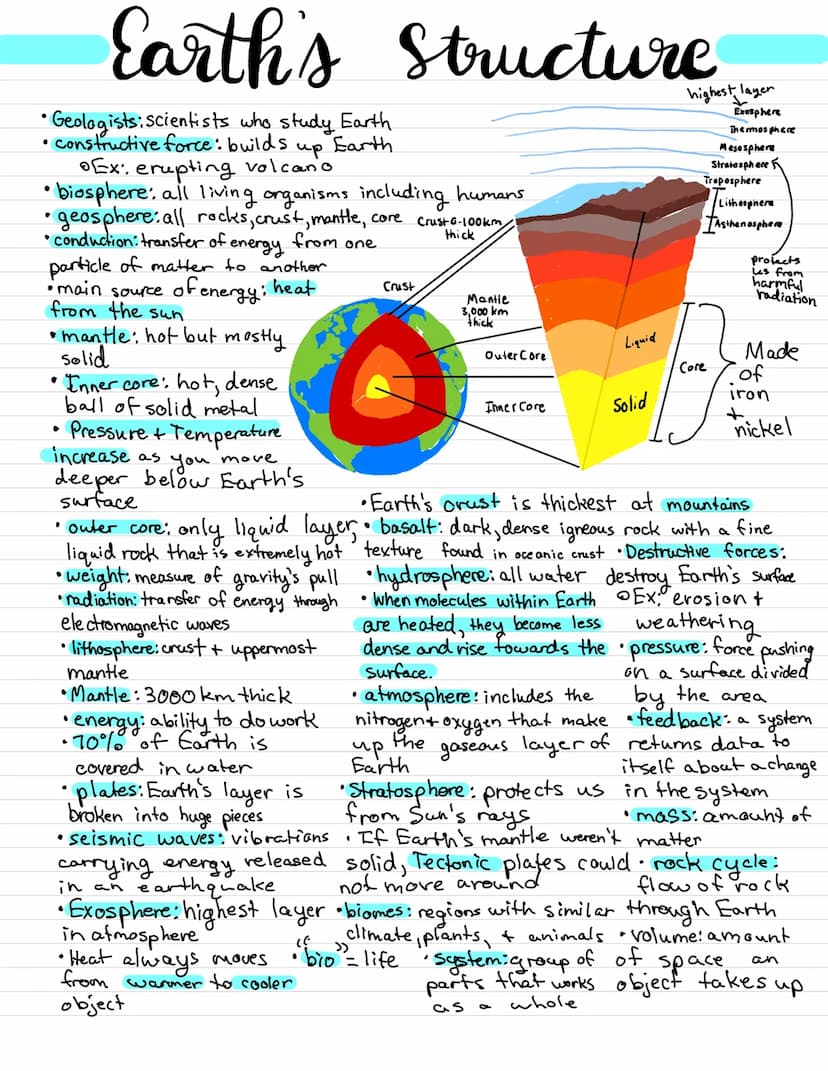 Earth's Structure
• Geologists: scientists who study Earth
• constructive force: builds up Earth
◦ Ex: erupting volcano
• biosphere: all living organisms including humans
• geosphere: all rocks, crust, mantle, core
• conduction: transfer of energy from one
particle of matter to another
• main source of energy: heat
from the sun
• mantle: hot but mostly
solid
• Inner core: hot, dense
ball of solid metal
• Pressure + Temperature
increase as you move
deeper below Earth's
surface
highest layer
Exosphere
Thermosphere
Mesosphere
Stratosphere
Troposphere
Lithosphere
Asthenosphere
protects
us from
harmful
radiation
Crust 0-100km
thick
Crust
Mantle
3,000 km
thick
Outer Core
Inner Core
Liquid
Solid
Core
Made
of
iron
+
nickel
• outer core: only liquid layer,
liquid rock that is extremely hot
• weight: measure of gravity's pull
• radiation: transfer of energy through
electromagnetic waves
• lithosphere: crust + uppermost
mantle
• Mantle: 3000 km thick
• energy: ability to do work
• 70% of Earth is
covered in water
• plates: Earth's layer is
broken into huge pieces
• seismic waves: vibrations
carrying energy released
in an earthquake
• Exosphere: highest layer
in atmosphere
• Heat always moves
from warmer to cooler
object
• Earth's crust is thickest at mountains
• basalt: dark, dense igneous rock with a fine
texture found in oceanic crust
• hydrosphere: all water
• When molecules within Earth
are heated, they become less
dense and rise towards the
surface.
• atmosphere: includes the
nitrogen + oxygen that make
up the gaseous layer of
Earth
• Stratosphere: protects us
from Sun's rays
• If Earth's mantle weren't
solid, Tectonic plates could
not move around
• biomes: regions with similar
climate, plants, + animals
• "bio" = life
• system: group of
parts that works
as a whole
• Destructive forces:
destroy Earth's surface
◦ Ex: erosion +
weathering
• pressure: force pushing
on a surface divided
by the area
• feedback: a system
returns data to
itself about a change
in the system
• mass: amount of
matter
• rock cycle:
flow of rock
through Earth
• volume: amount
of space an
object takes up